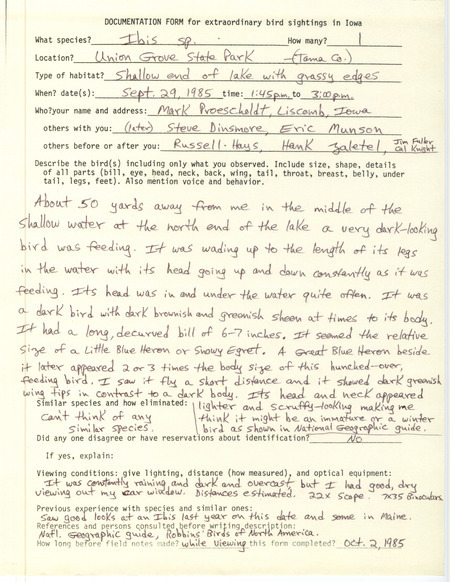 DOCUMENTATION FORM for extraordinary bird sightings in Iowa
What species? Ibis sp. How many? 1
Location? Union Grove State Park (Tama Co.)
Type of habitat? Shallow end of lake with grassy edges
When? date(s): Sept. 29, 1985 time: 1:45 p.m. to 3:00 p.m.
Who?your name and address: Mark Proescholdt, Liscomb, Iowa
others with you: (later) Steve Dinsmore, Eric Munson
others before or after you: Russell Hays, Hank Zaletel, Jim Fuller Cal Knight
Describe the bird(s) including only what you observed. Include size, shape, details
of all parts (bill, eye, head, neck, back, wing, tail, throat, breast, belly, under
tail, legs, feet). Also mention voice and behavior.
About 50 yards away from me in the middle of the
shallow water at the north end of the lake a very dark-looking
bird was feeding. It was wading up to the length of its legs
in the water with its head going up and down constantly as it was
feeding. Its head was in and under the water quite often. It was
a dark bird with dark brownish and greenish sheen at times to its body.
It had a long, decurved bill of 6-7 inches. It seemed the relative
size of a Little Blue Heron or Snowy Egret. A Great Blue Heron beside
it later appeared 2 or 3 times the body size of this hunched-over,
feeding bird. I saw it fly a short distance and it showed dark greenish
wing tips in contrast to a dark body. Its head and neck appeared
lighter and scruffy-looking making me
think it might be an immature or a winter
bird as shown in National Geographic guide.
Similar species and how eliminated:
can't think of any
similar species.
Did any one disagree or have reservations about identification? No
If yes, explain:
Viewing conditions: give lighting, distance (how measured), and optical equipment:
It was constantly raining and dark and overcast but I had good, dry
viewing out my car window. Distances estimated. 22x Scope. 7x35 Binoculars
Previous experience with species and similar ones:
Saw good looks at an Ibis last year on this date and some in Maine.
References and persons consulted before writing description:
Natl. Geographic guide, Robbins' Birds of North America.
How long before field notes made? while viewing this form completed? Oct. 2, 1985